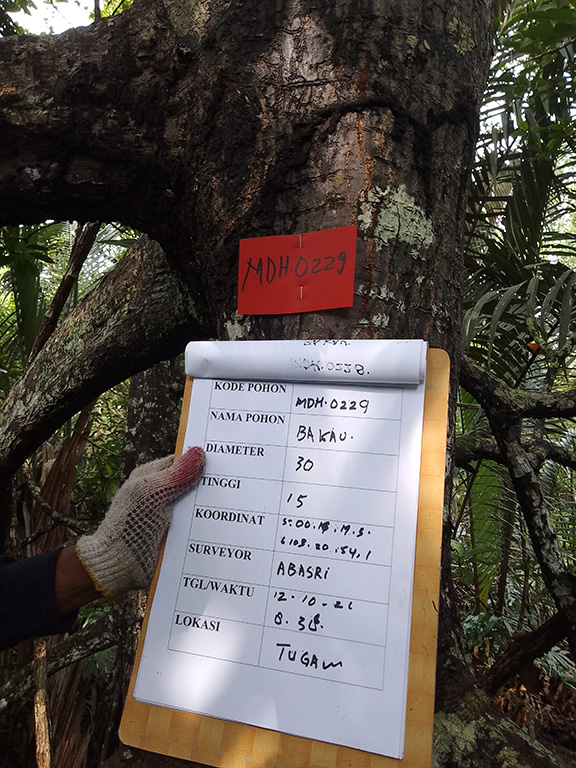 MDH.0229
KODE POHON MDH.0229
NAMA POHON BAKAU.
DIAMETER 30
TINGGI 15
KOORDINAT
SURVEYOR ABASRI
TGL/WAKTU 12-10-21
8.38.
LOKASI